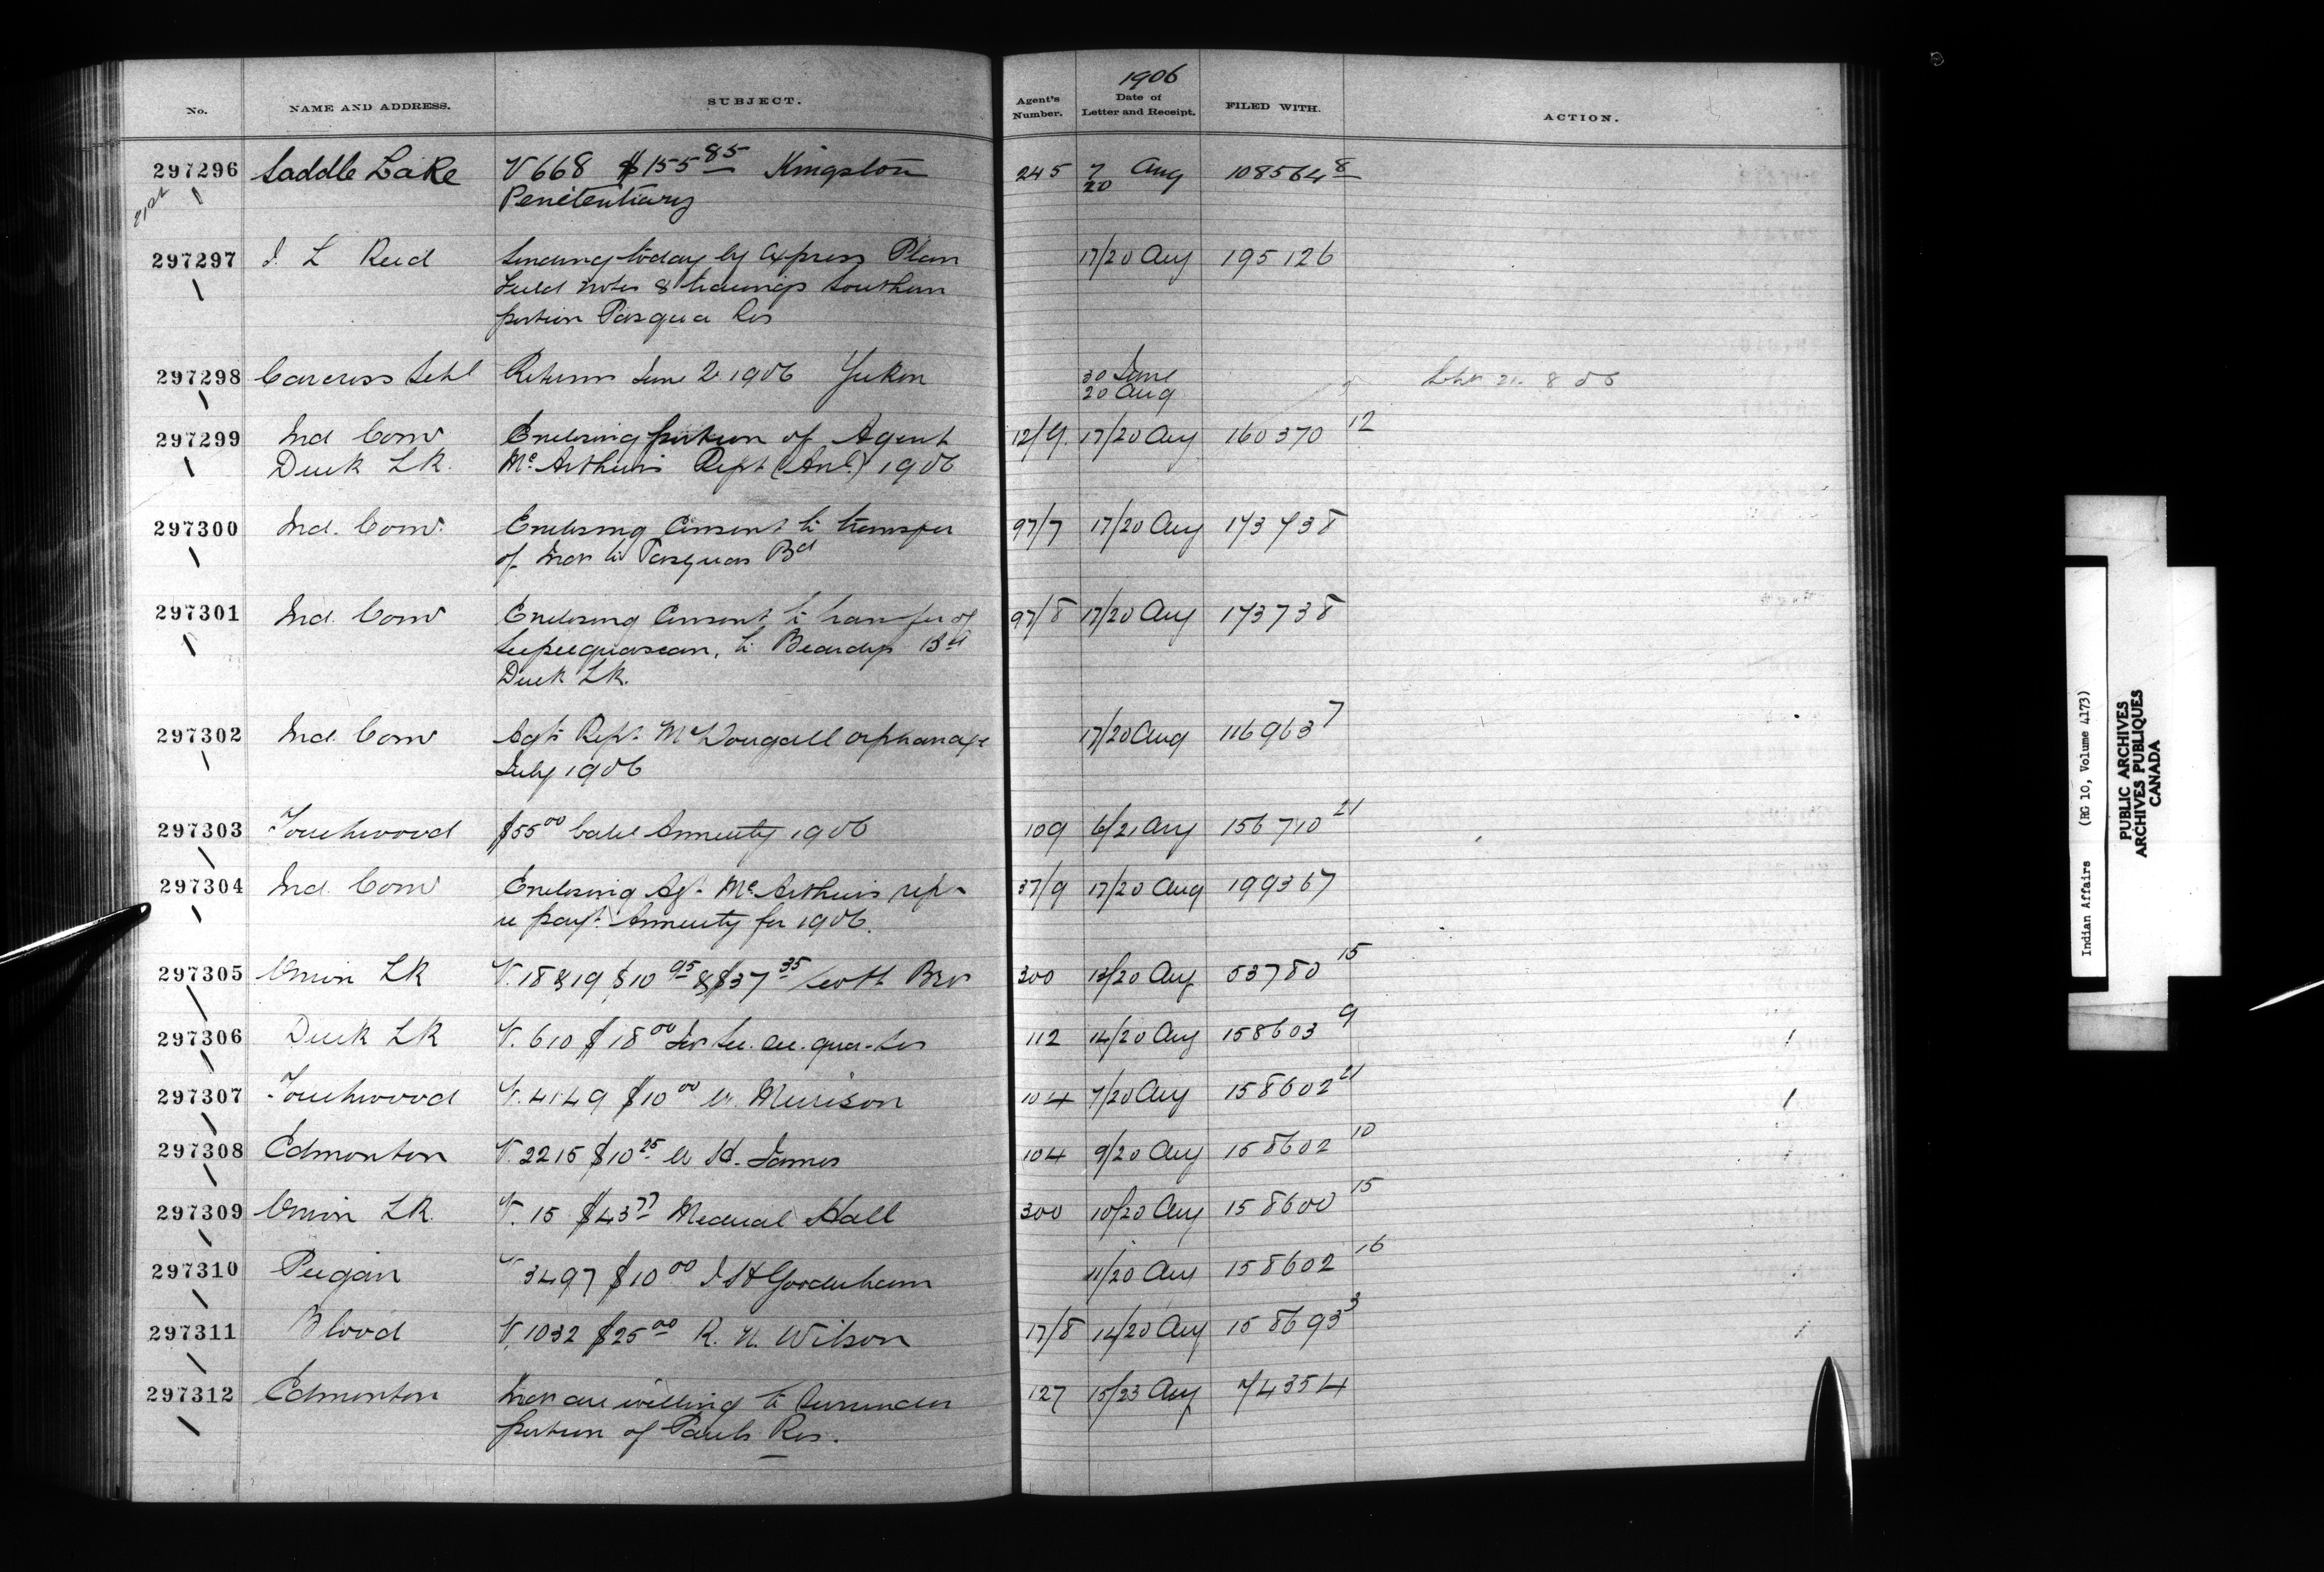 1906
No. NAME AND ADDRESS. SUBJECT. Agent's Number. Date of Letter and Receipt. FILED WITH. ACTION.
297296 Saddle Lake V 668 $155 85 Kingston 245 7/20 Aug 108564 8
21st Penitentiary
297297 J. L Reid Sending today by Express Plan 17/20 Aug 195126
Field notes & tracings Southern
portion Pasqua Res
297298 Carcross Schl Returns June 2 1906 Yukon 30 June
20 Aug
297299 Ind Comr Enclosing portion of Agent 12/9. 17/20 Aug 160370 12
Duck Lk. McArthurs Rept (Anl.) 1906
297300 Ind. Comr. Enclosing Consent to transfer 97/7 17/20 Aug 173738
of to Pasquas Bd
297301 Ind. Comr Enclosing Consent to transfer of 97/8 17/20 Aug 173738
to Beardys Bd
Duck Lk.
297302 Ind. Comr Agts Rept. McDougall orphanage 17/20 Aug 116963 7
July 1906
297303 Touchwood $55 00 Annuity 1906 109 6/21 Aug 156710 21
297304 Ind. Comr Enclosing Agt. McArthurs rept 37/9 17/20 Aug 199367
re payt. Annuity for 1906.
297305 Onion Lk V. 18 & 19 $10 95 & $37 35 Scott Bro 300 13/20 Aug 53780 15
297306 Duck Lk V. 610 $18 00 112 14/20 Aug 158603 9
297307 Touchwood V. 4149 $10 00 W. Murison 104 7/20 Aug 158602 21
297308 Edmonton V. 2215 $10 25 James 104 9/20 Aug 158602 10
297309 Onion Lk. V. 15 $43 77 Medical Hall 300 10/20 Aug 158600 15
297310 Peigan V 3497 $10 00 J H Gooderham 11/20 Aug 158602 16
297311 Blood V. 1032 $25 00 R. N. Wilson 17/8 14/20 Aug 158693 3
297312 Edmonton are willing to Surrender 127 15/23 Aug 74354
portion of Pauls Res.
Indian Affairs (RG 10, Volume 4173)
PUBLIC ARCHIVES
ARCHIVES PUBLIQUES
CANADA